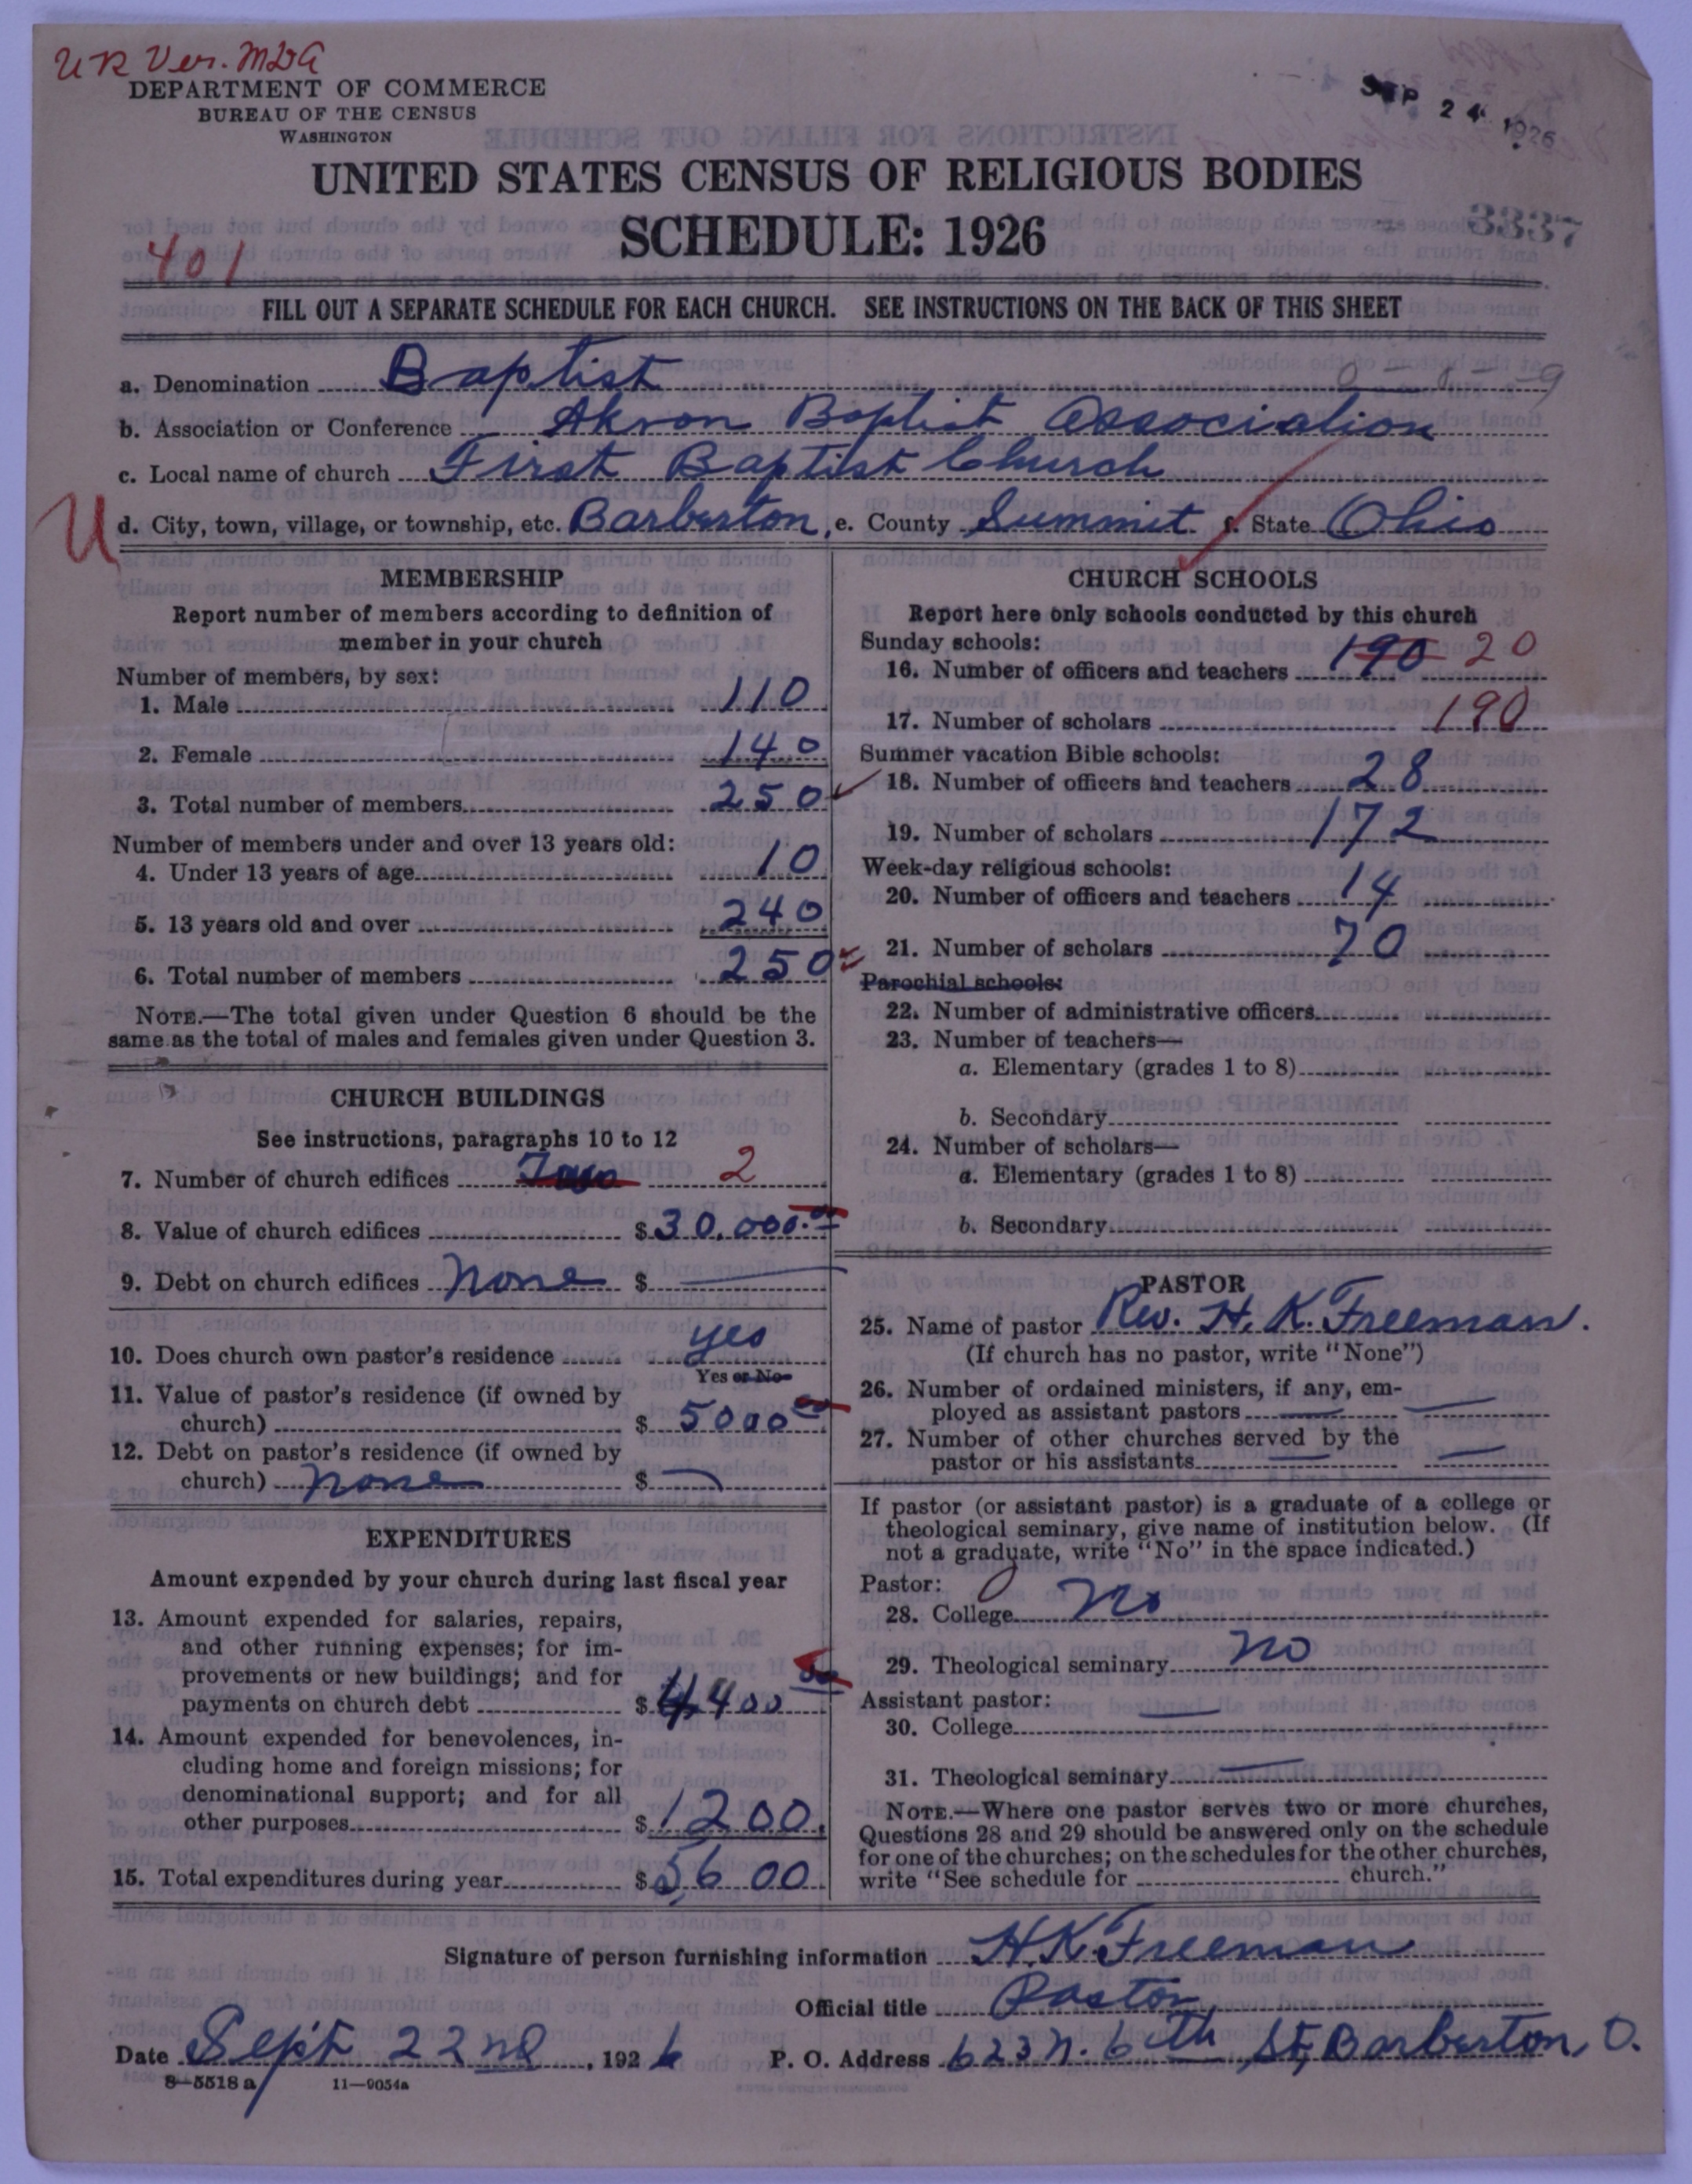 UR Ver. MDA
DEPARTMENT OF COMMERCE
BUREAU OF THE CENSUS
WASHINGTON
SEP 24 1926
UNITED STATES CENSUS OF RELIGIOUS BODIES
SCHEDULE: 1926
3337
401
FILL OUT A SEPARATE SCHEDULE FOR EACH CHURCH. SEE INSTRUCTIONS ON THE BACK OF THIS SHEET
a. Denomination Baptist 0-8-9
b. Association or Conference Akron Baptist Association
c. Local name of church First Baptist Church
U d. City, town, village, or township, etc. Barberton, e. County Summit f. State Ohio
MEMBERSHIP
Report number of members according to definition of
member in your church
Number of members, by sex:
1. Male 110
2. Female 140
3. Total number of members 250
Number of members under and over 13 years old:
4. Under 13 years of age 10
5. 13 years old and over 240
6. Total number of members 250
NOTE.—The total given under Question 6 should be the
same as the total of males and females given under Question 3.
CHURCH BUILDINGS
See instructions, paragraphs 10 to 12
7. Number of church edifices Two 2
8. Value of church edifices $30,000.00
9. Debt on church edifices None $
10. Does church own pastor's residence yes
Yes or No
11. Value of pastor's residence (if owned by
church) $ 5000 00
12. Debt on pastor's residence (if owned by
church) None $
EXPENDITURES
Amount expended by your church during last fiscal year
13. Amount expended for salaries, repairs,
and other running expenses; for im-
provements or new buildings; and for
payments on church debt $4400 00
14. Amount expended for benevolences, in-
cluding home and foreign missions; for
denominational support; and for all
other purposes $1200
15. Total expenditures during year $5600
CHURCH SCHOOLS
Report here only schools conducted by this church
Sunday schools:
16. Number of officers and teachers 190 20
17. Number of scholars 190
Summer vacation Bible schools:
18. Number of officers and teachers 28
19. Number of scholars 172
Week-day religious schools:
20. Number of officers and teachers 14
21. Number of scholars 70
Parochial schools:
22. Number of administrative officers
23. Number of teachers—
a. Elementary (grades 1 to 8)
b. Secondary
24. Number of scholars—
a. Elementary (grades 1 to 8)
b. Secondary
PASTOR
25. Name of pastor Rev. H. K. Freeman.
(If church has no pastor, write "None")
26. Number of ordained ministers, if any, em-
ployed as assistant pastors
27. Number of other churches served by the
pastor or his assistants
If pastor (or assistant pastor) is a graduate of a college or
theological seminary, give name of institution below. (If
not a graduate, write "No" in the space indicated.)
Pastor:
28. College No
29. Theological seminary No
Assistant pastor:
30. College
31. Theological seminary
NOTE.—Where one pastor serves two or more churches,
Questions 28 and 29 should be answered only on the schedule
for one of the churches; on the schedules for the other churches,
write "See schedule for church."
Signature of person furnishing information H.K. Freeman
Official title Pastor
Date Sept 22nd, 1926 P. O. Address 623 N. 6th St, Barberton, O.
8—5518 a 11—9054a